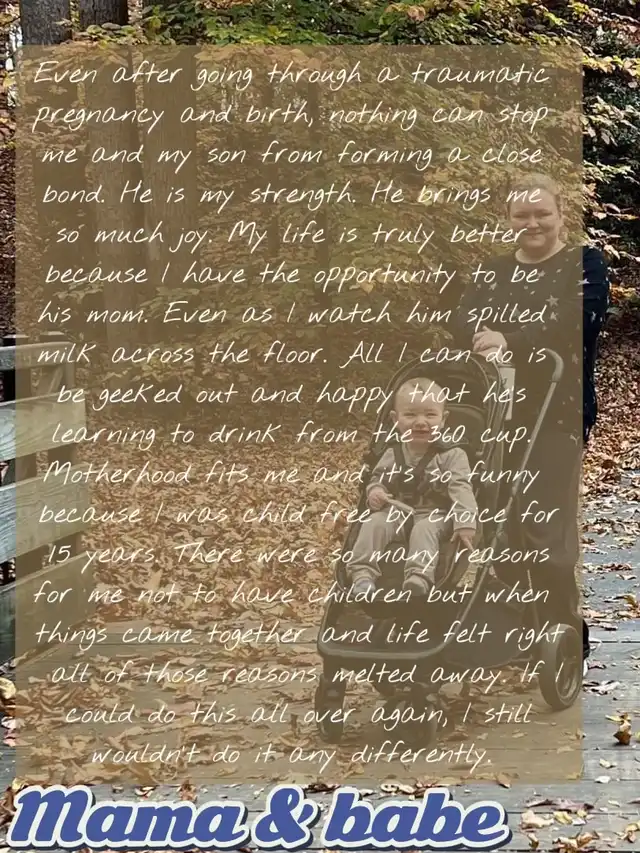 Even after going through a traumatic
pregnancy and birth, nothing can stop
me and my son from forming a close
bond. He is my strength. He brings me
so much joy. My life is truly better
because I have the opportunity to be
his mom. Even as I watch him spilled
milk across the floor. All I can do is
be geeked out and happy that he's
learning to drink from the 360 cup.
Motherhood fits me and it's so funny
because I was child free by choice for
15 years. There were so many reasons
for me not to have children but when
things came together and life felt right
all of those reasons melted away. If I
could do this all over again, I still
wouldn't do it any differently.
Mama & babe